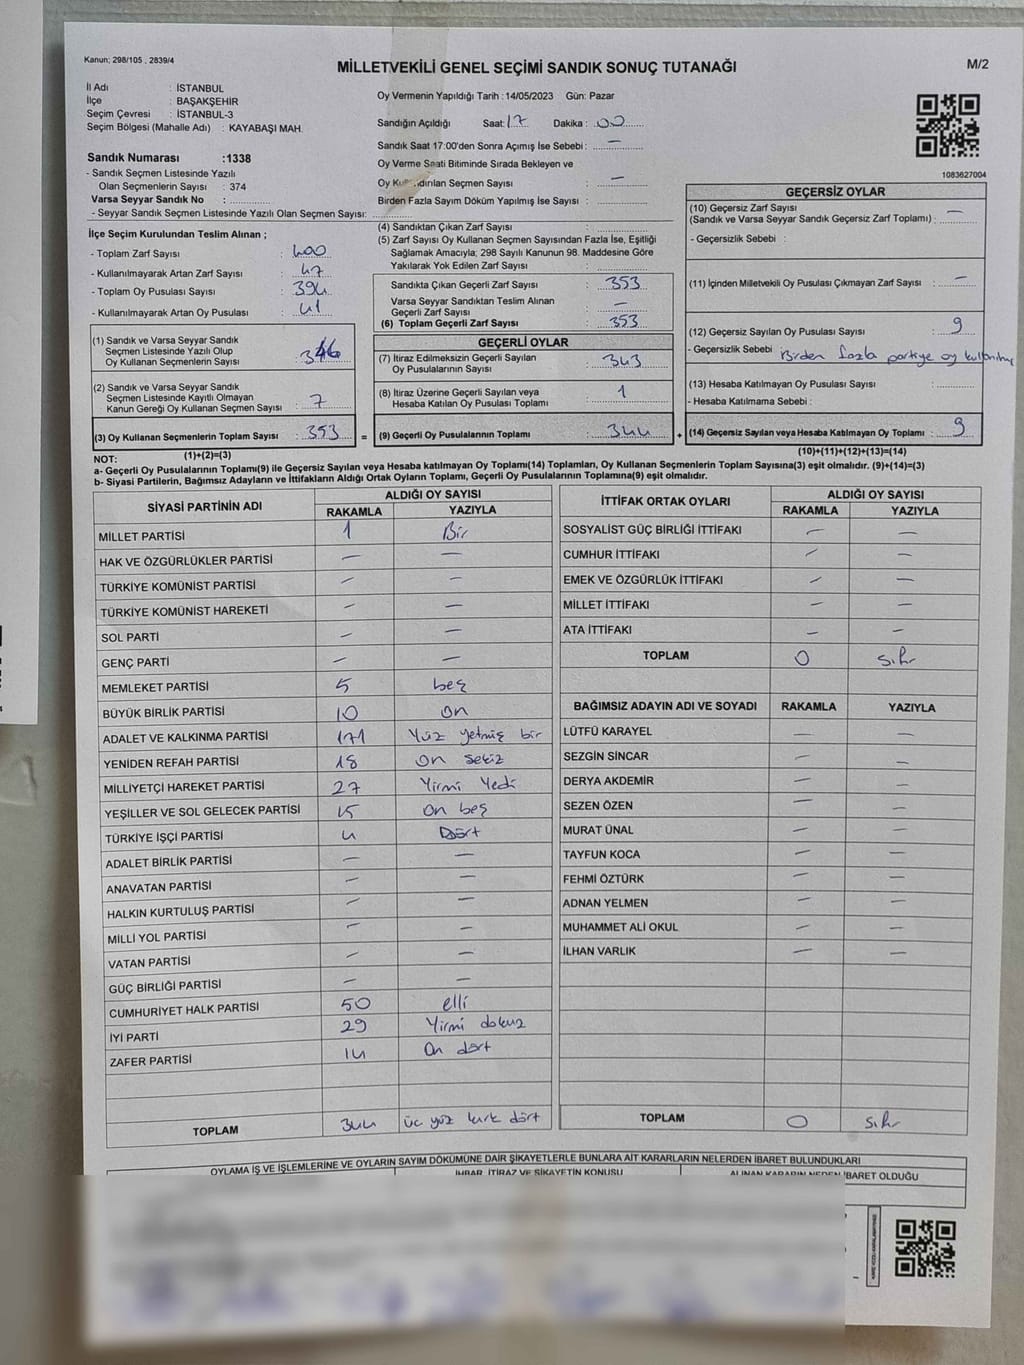 Kanun; 298/105 , 2839/4
MİLLETVEKİLİ GENEL SEÇİMİ SANDIK SONUÇ TUTANAĞI
M/2
İl Adı : İSTANBUL
İlçe : BAŞAKŞEHİR
Seçim Çevresi : İSTANBUL-3
Seçim Bölgesi (Mahalle Adı) : KAYABAŞI MAH.
Sandık Numarası :1338
- Sandık Seçmen Listesinde Yazılı
Olan Seçmenlerin Sayısı : 374
Varsa Seyyar Sandık No :
- Seyyar Sandık Seçmen Listesinde Yazılı Olan Seçmen Sayısı:
İlçe Seçim Kurulundan Teslim Alınan ;
- Toplam Zarf Sayısı : 400
- Kullanılmayarak Artan Zarf Sayısı : 47
- Toplam Oy Pusulası Sayısı : 394
- Kullanılmayarak Artan Oy Pusulası : 41
(1) Sandık ve Varsa Seyyar Sandık
Seçmen Listesinde Yazılı Olup
Oy Kullanan Seçmenlerin Sayısı : 346
(2) Sandık ve Varsa Seyyar Sandık
Seçmen Listesinde Kayıtlı Olmayan
Kanun Gereği Oy Kullanan Seçmen Sayısı : 7
(3) Oy Kullanan Seçmenlerin Toplam Sayısı : 353 =
(1)+(2)=(3)
Oy Vermenin Yapıldığı Tarih : 14/05/2023 Gün: Pazar
Sandığın Açıldığı Saat: 17 Dakika : 00
Sandık Saat 17:00'den Sonra Açımış İse Sebebi : —
Oy Verme Saati Bitiminde Sırada Bekleyen ve
Oy Seçmen Sayısı : —
Birden Fazla Sayım Döküm Yapılmış İse Sayısı :
(4) Sandıktan Çıkan Zarf Sayısı :
(5) Zarf Sayısı Oy Kullanan Seçmen Sayısından Fazla İse, Eşitliği
Sağlamak Amacıyla; 298 Sayılı Kanunun 98. Maddesine Göre
Yakılarak Yok Edilen Zarf Sayısı :
Sandıkta Çıkan Geçerli Zarf Sayısı : 353
Varsa Seyyar Sandıktan Teslim Alınan
Geçerli Zarf Sayısı : —
(6) Toplam Geçerli Zarf Sayısı : 353
GEÇERLİ OYLAR
(7) İtiraz Edilmeksizin Geçerli Sayılan
Oy Pusulalarının Sayısı : 343
(8) İtiraz Üzerine Geçerli Sayılan veya
Hesaba Katılan Oy Pusulası Toplamı : 1
(9) Geçerli Oy Pusulalarının Toplamı : 344 +
1083627004
GEÇERSİZ OYLAR
(10) Geçersiz Zarf Sayısı
(Sandık ve Varsa Seyyar Sandık Geçersiz Zarf Toplamı) : —
- Geçersizlik Sebebi :
(11) İçinden Milletvekili Oy Pusulası Çıkmayan Zarf Sayısı : —
(12) Geçersiz Sayılan Oy Pusulası Sayısı : 9
- Geçersizlik Sebebi : Birden fazla partiye oy kullanılmış
(13) Hesaba Katılmayan Oy Pusulası Sayısı :
- Hesaba Katılmama Sebebi :
(14) Geçersiz Sayılan veya Hesaba Katılmayan Oy Toplamı : 9
(10)+(11)+(12)+(13)=(14)
NOT:
a- Geçerli Oy Pusulalarının Toplamı(9) ile Geçersiz Sayılan veya Hesaba katılmayan Oy Toplamı(14) Toplamları, Oy Kullanan Seçmenlerin Toplam Sayısına(3) eşit olmalıdır. (9)+(14)=(3)
b- Siyasi Partilerin, Bağımsız Adayların ve İttifakların Aldığı Ortak Oyların Toplamı, Geçerli Oy Pusulalarının Toplamına(9) eşit olmalıdır.
SİYASİ PARTİNİN ADI ALDIĞI OY SAYISI
RAKAMLA YAZIYLA
MİLLET PARTİSİ 1 Bir
HAK VE ÖZGÜRLÜKLER PARTİSİ — —
TÜRKİYE KOMÜNİST PARTİSİ — —
TÜRKİYE KOMÜNİST HAREKETİ — —
SOL PARTİ — —
GENÇ PARTİ — —
MEMLEKET PARTİSİ 5 beş
BÜYÜK BİRLİK PARTİSİ 10 on
ADALET VE KALKINMA PARTİSİ 171 Yüz yetmiş bir
YENİDEN REFAH PARTİSİ 18 on sekiz
MİLLİYETÇİ HAREKET PARTİSİ 27 Yirmi Yedi
YEŞİLLER VE SOL GELECEK PARTİSİ 15 on beş
TÜRKİYE İŞÇİ PARTİSİ 4 Dört
ADALET BİRLİK PARTİSİ — —
ANAVATAN PARTİSİ — —
HALKIN KURTULUŞ PARTİSİ — —
MİLLİ YOL PARTİSİ — —
VATAN PARTİSİ — —
GÜÇ BİRLİĞİ PARTİSİ — —
CUMHURİYET HALK PARTİSİ 50 elli
İYİ PARTİ 29 Yirmi dokuz
ZAFER PARTİSİ 14 On dört
TOPLAM 344 üç yüz kırk dört
İTTİFAK ORTAK OYLARI ALDIĞI OY SAYISI
RAKAMLA YAZIYLA
SOSYALİST GÜÇ BİRLİĞİ İTTİFAKI — —
CUMHUR İTTİFAKI — —
EMEK VE ÖZGÜRLÜK İTTİFAKI — —
MİLLET İTTİFAKI — —
ATA İTTİFAKI — —
TOPLAM 0 sıfır
BAĞIMSIZ ADAYIN ADI VE SOYADI RAKAMLA YAZIYLA
LÜTFÜ KARAYEL — —
SEZGİN SİNCAR — —
DERYA AKDEMİR — —
SEZEN ÖZEN — —
MURAT ÜNAL — —
TAYFUN KOCA — —
FEHMİ ÖZTÜRK — —
ADNAN YELMEN — —
MUHAMMET ALİ OKUL — —
İLHAN VARLIK — —
TOPLAM 0 sıfır
OYLAMA İŞ VE İŞLEMLERİNE VE OYLARIN SAYIM DÖKÜMÜNE DAİR ŞİKAYETLERLE BUNLARA AİT KARARLARIN NELERDEN İBARET BULUNDUKLARI
İHBAR, İTİRAZ VE ŞİKAYETİN KONUSU
ALINAN KARARIN NEDEN İBARET OLDUĞU